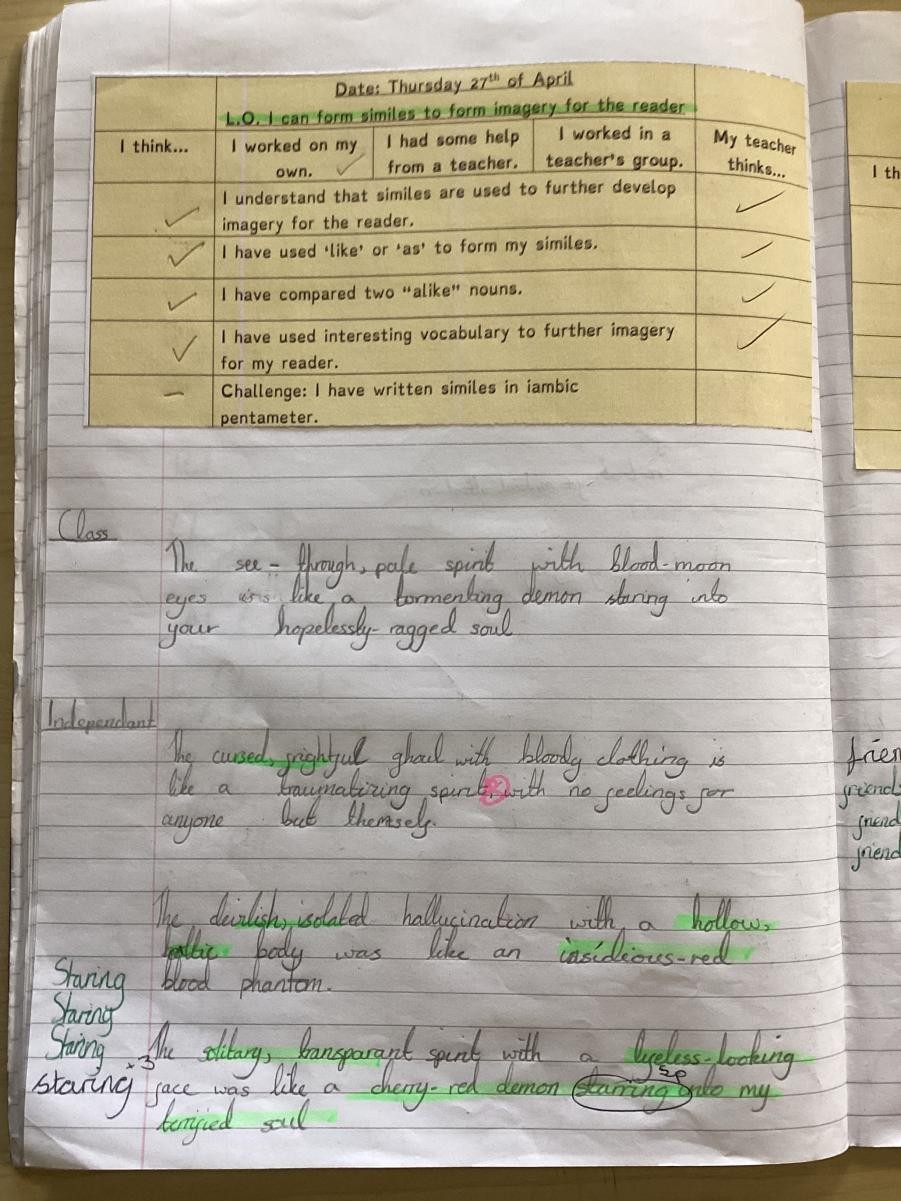 Date: Thursday 27th of April
L.O. I can form similes to form imagery for the reader
I think...
I worked on my own.
I had some help from a teacher.
I worked in a teacher's group.
My teacher thinks...
I understand that similes are used to further develop
imagery for the reader.
I have used 'like' or 'as' to form my similes.
I have compared two "alike" nouns.
I have used interesting vocabulary to further imagery
for my reader.
Challenge: I have written similes in iambic
pentameter.
I th
Class
The see-through, pale spirit with blood-moon
eyes is like a tormenting demon staring into
your hopelessly-ragged soul
Independant
The cursed, frightful ghoul with bloody clothing is
like a traumatizing spirit with no feelings for
anyone but themself.
The deivlish, isolated hallucination with a hollow,
body was like an insidious-red
blood phantom.
The solitary, transparant spirit with a lyeless-looking
face was like a cherry-red demon starring into my
terrified soul
sp
Staring
Staring
Staring
x3
staring
frien
friend
friend
friend